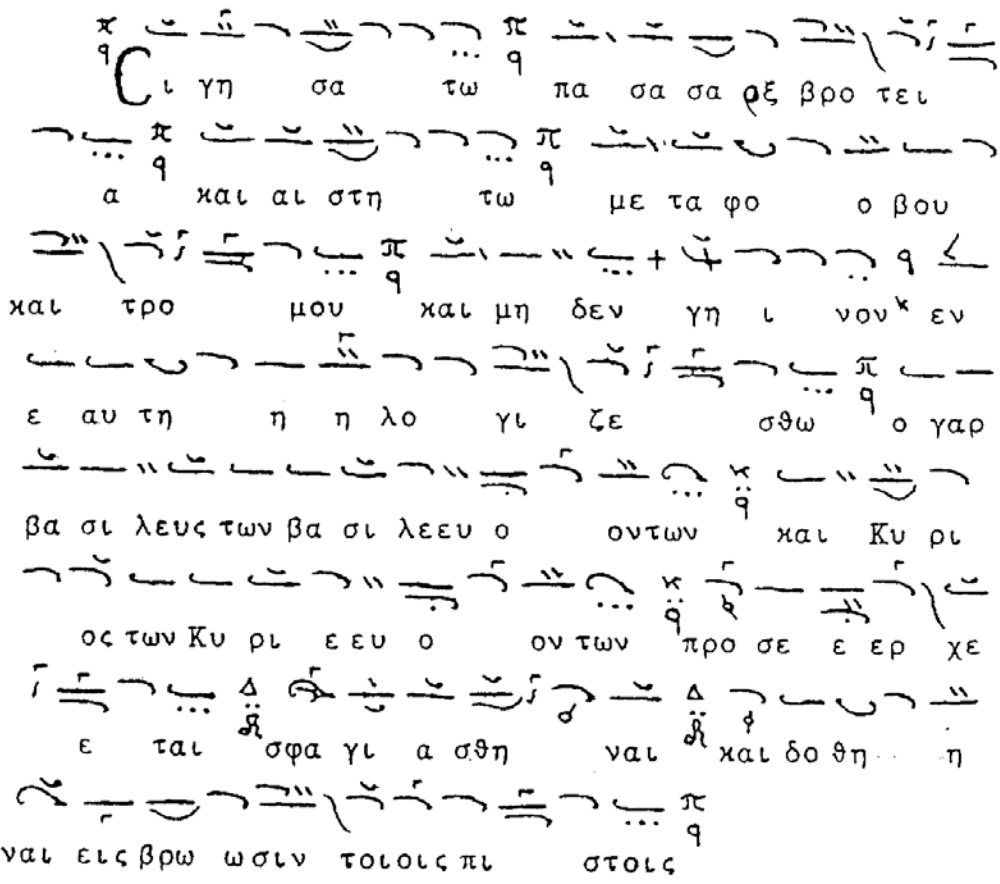 Cι γη σα τω πα σα σα ρξ βρο τει
α και αι στη τω με τα φο ο βου
και τρο μου και μη δεν γη ι νον εν
ε αυ τη η η λο γι ζε σθω ο γαρ
βα σι λευς των βα σι λεευ ο οντων και Κυ ρι
ος των Κυ ρι ε ευ ο ον των προ σε ε ερ χε
ε ται σφα γι α σθη ναι και δο θη η
ναι εις βρω ω σιν τοιοις πι στοις